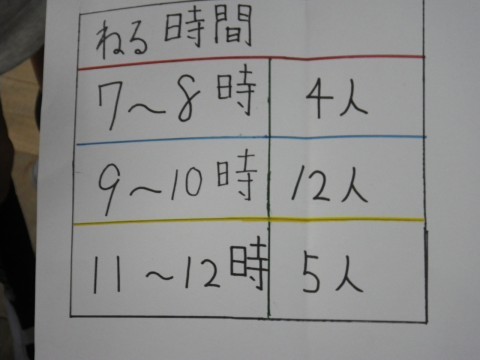 ねる時間
7～8時 4人
9～10時 12人
11～12時 5人